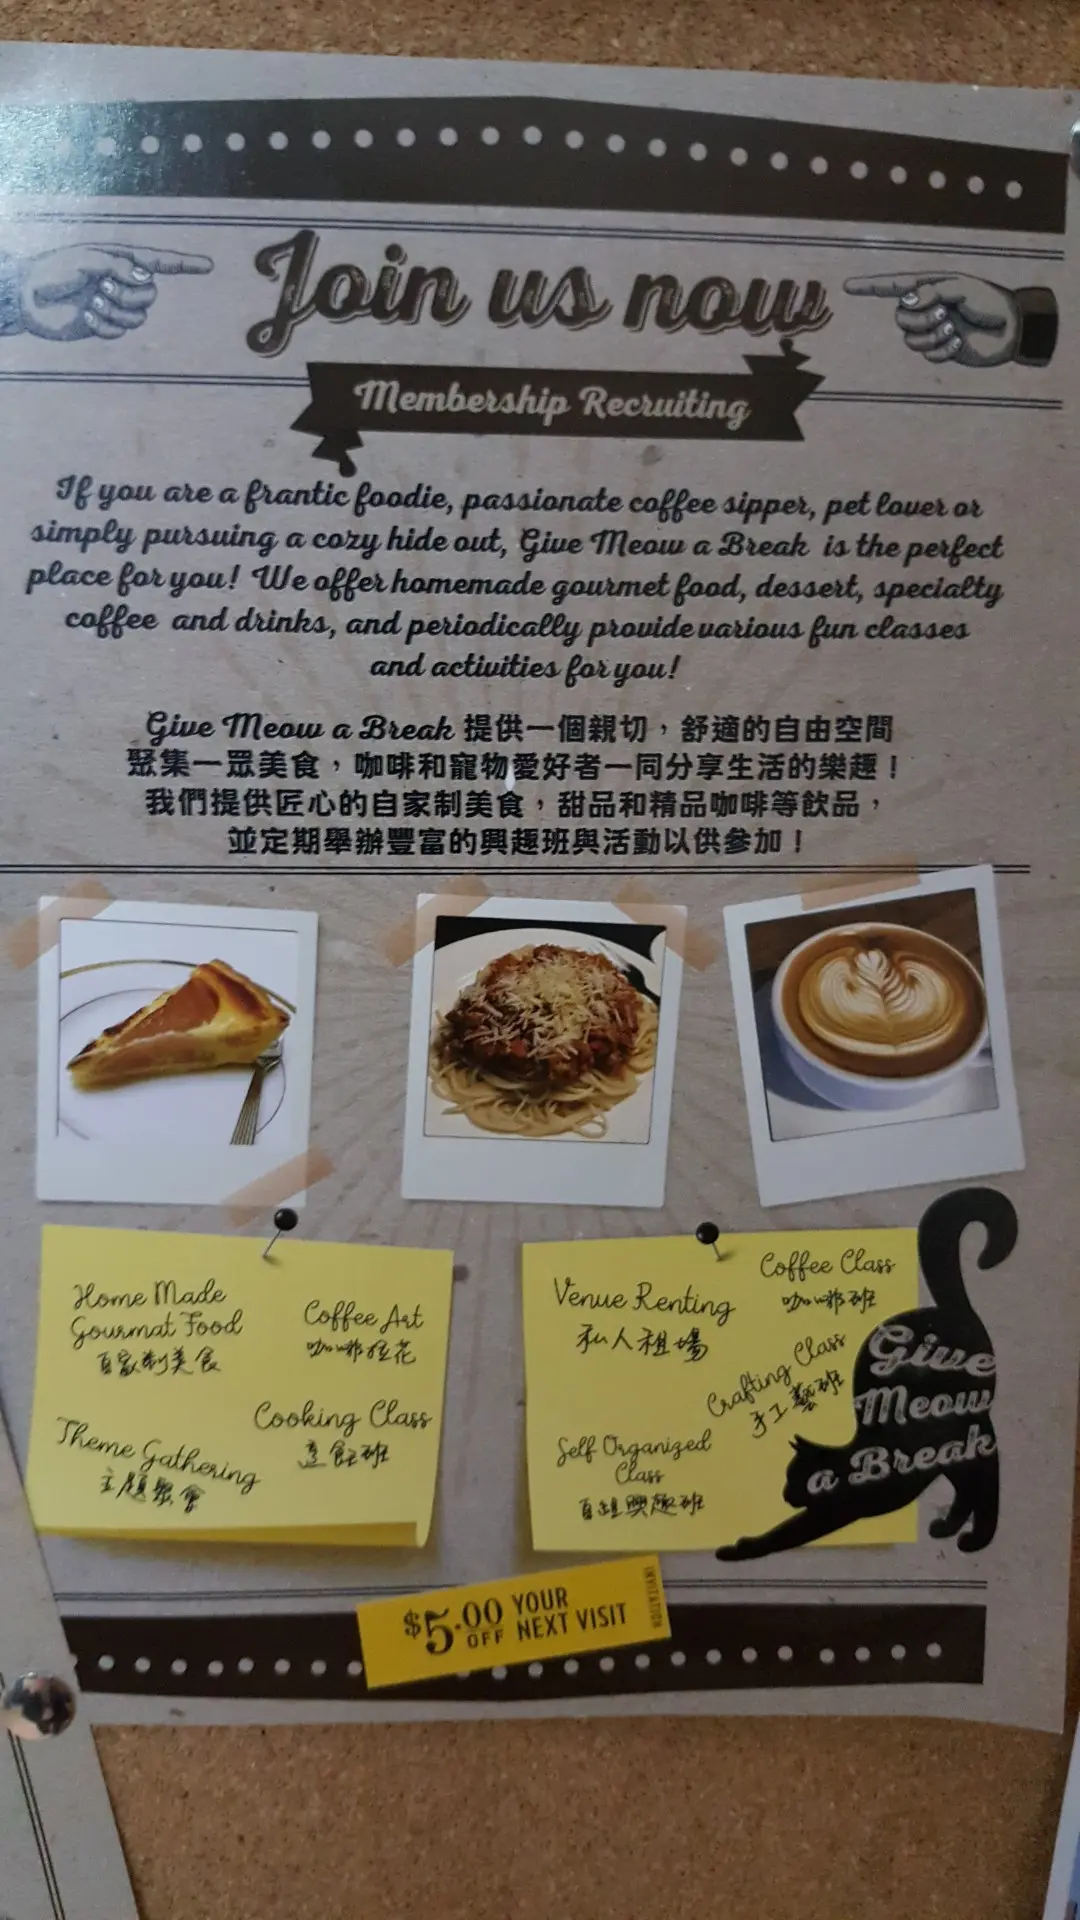 Join us now
Membership Recruiting
If you are a frantic foodie, passionate coffee sipper, pet lover or
simply pursuing a cozy hide out, Give Meow a Break is the perfect
place for you! We offer homemade gourmet food, dessert, specialty
coffee and drinks, and periodically provide various fun classes
and activities for you!
Give Meow a Break 提供一個親切，舒適的自由空間
聚集一眾美食，咖啡和寵物愛好者一同分享生活的樂趣！
我們提供匠心的自家制美食，甜品和精品咖啡等飲品，
並定期舉辦豐富的興趣班與活動以供參加！
Home Made
Gourmat Food
自家制美食
Coffee Art
咖啡拉花
Cooking Class
烹飪班
Theme Gathering
主題聚會
Venue Renting
私人租場
Coffee Class
咖啡班
Crafting Class
手工藝班
Self Organized
Class
自組興趣班
Give
Meow
a Break
$5.00 OFF YOUR
NEXT VISIT
INVITATION